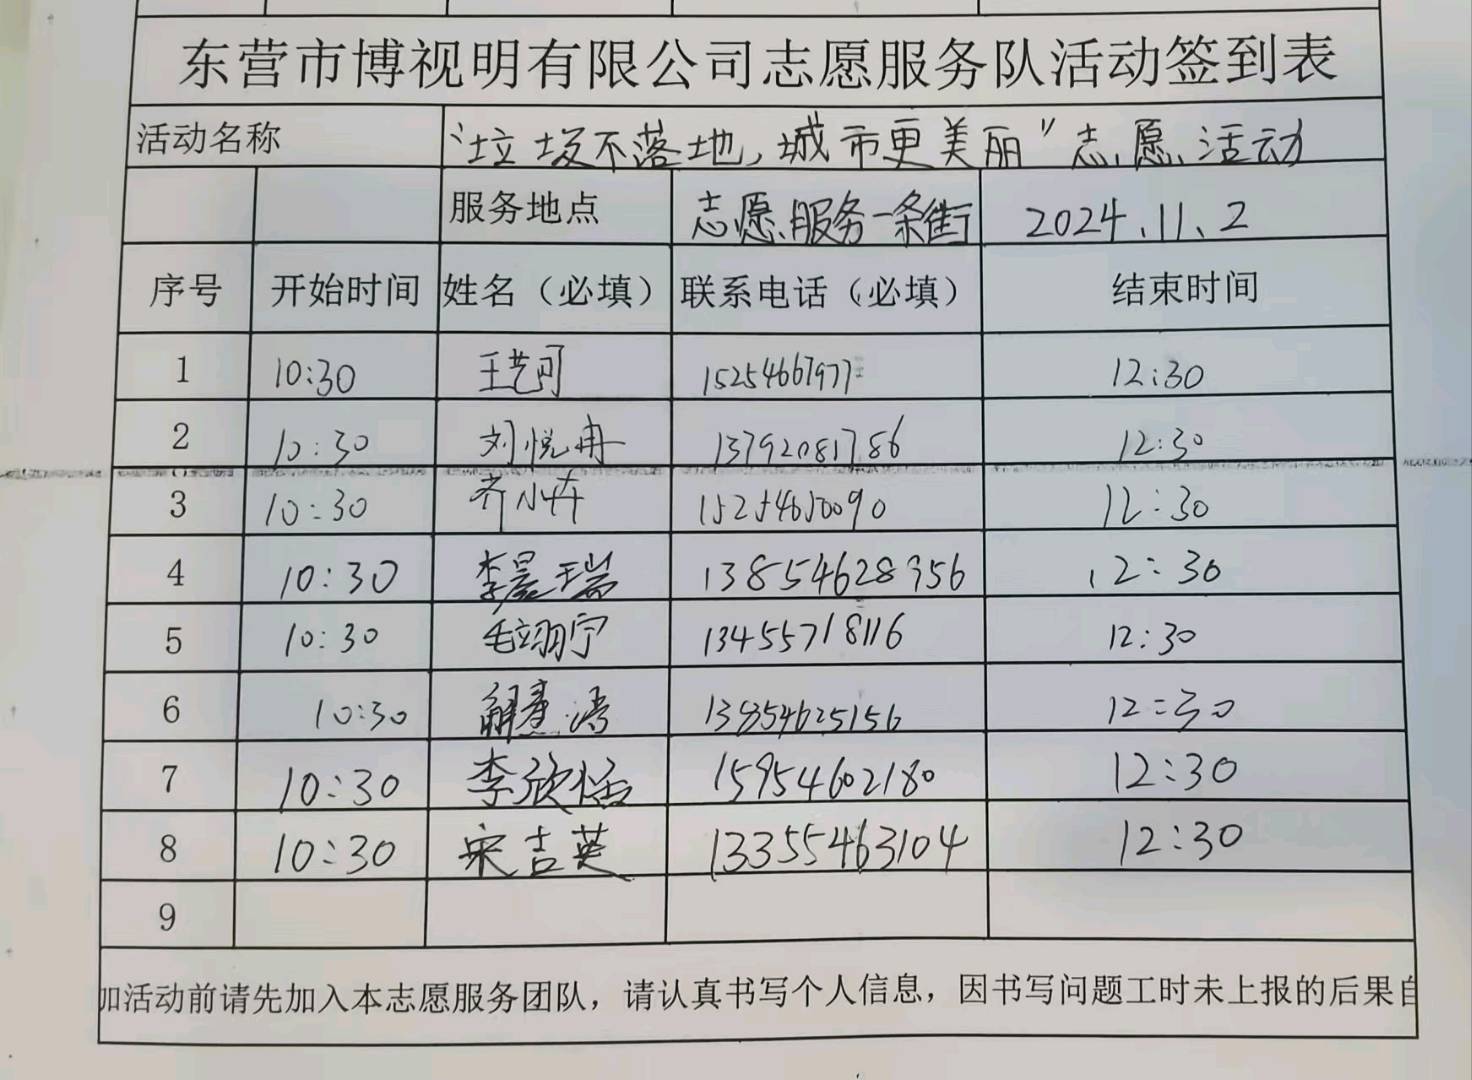 东营市博视明有限公司志愿服务队活动签到表
活动名称 “垃圾不落地，城市更美丽”志愿活动
服务地点 志愿服务一条街 2024.11.2
序号 开始时间 姓名（必填） 联系电话（必填） 结束时间
1 10:30 王艺可 15254667977 12:30
2 10:30 刘悦冉 13792081786 12:30
3 10:30 齐小卉 15254650090 12:30
4 10:30 李晨瑞 13854628956 12:30
5 10:30 毛翊宁 13455718116 12:30
6 10:30 13854625156 12:30
7 10:30 李欣恬 15954602180 12:30
8 10:30 宋吉英 13355463104 12:30
9
加活动前请先加入本志愿服务团队，请认真书写个人信息，因书写问题工时未上报的后果自